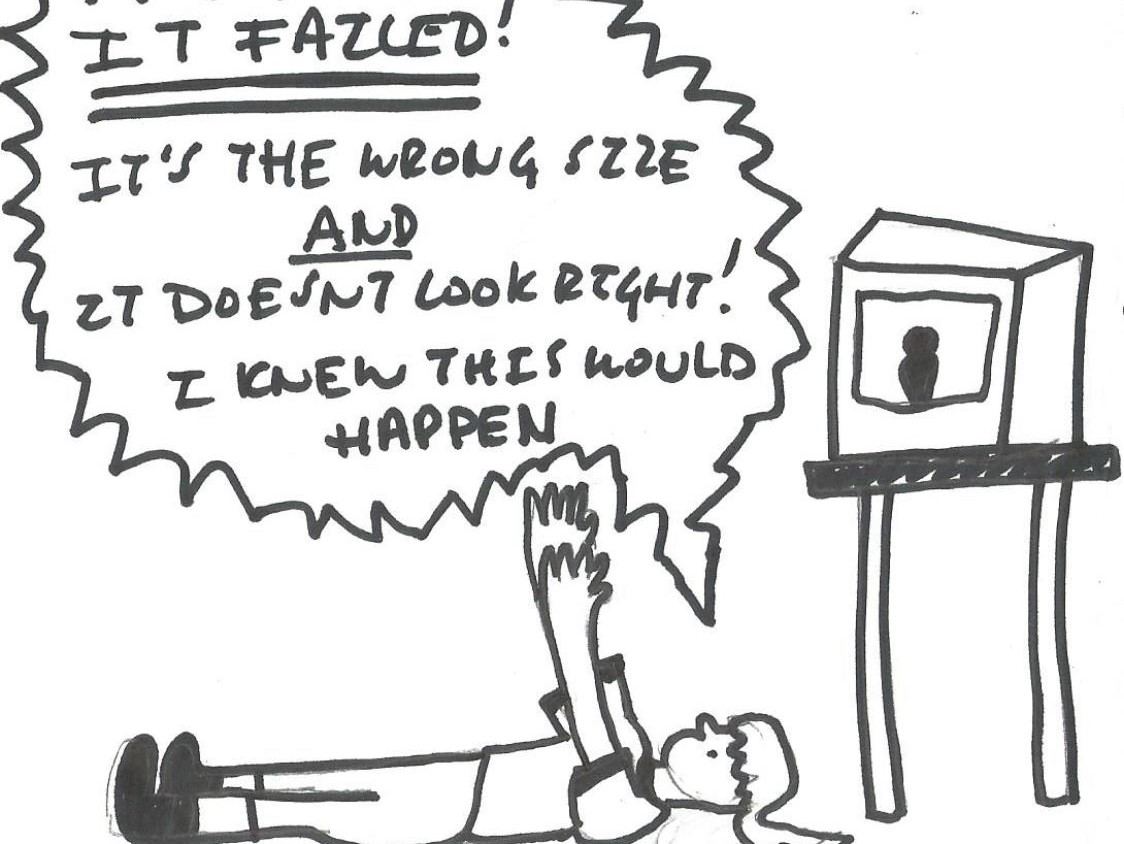 IT FAILED!
IT'S THE WRONG SIZE
AND
IT DOESNT LOOK RIGHT!
I KNEW THIS WOULD
HAPPEN